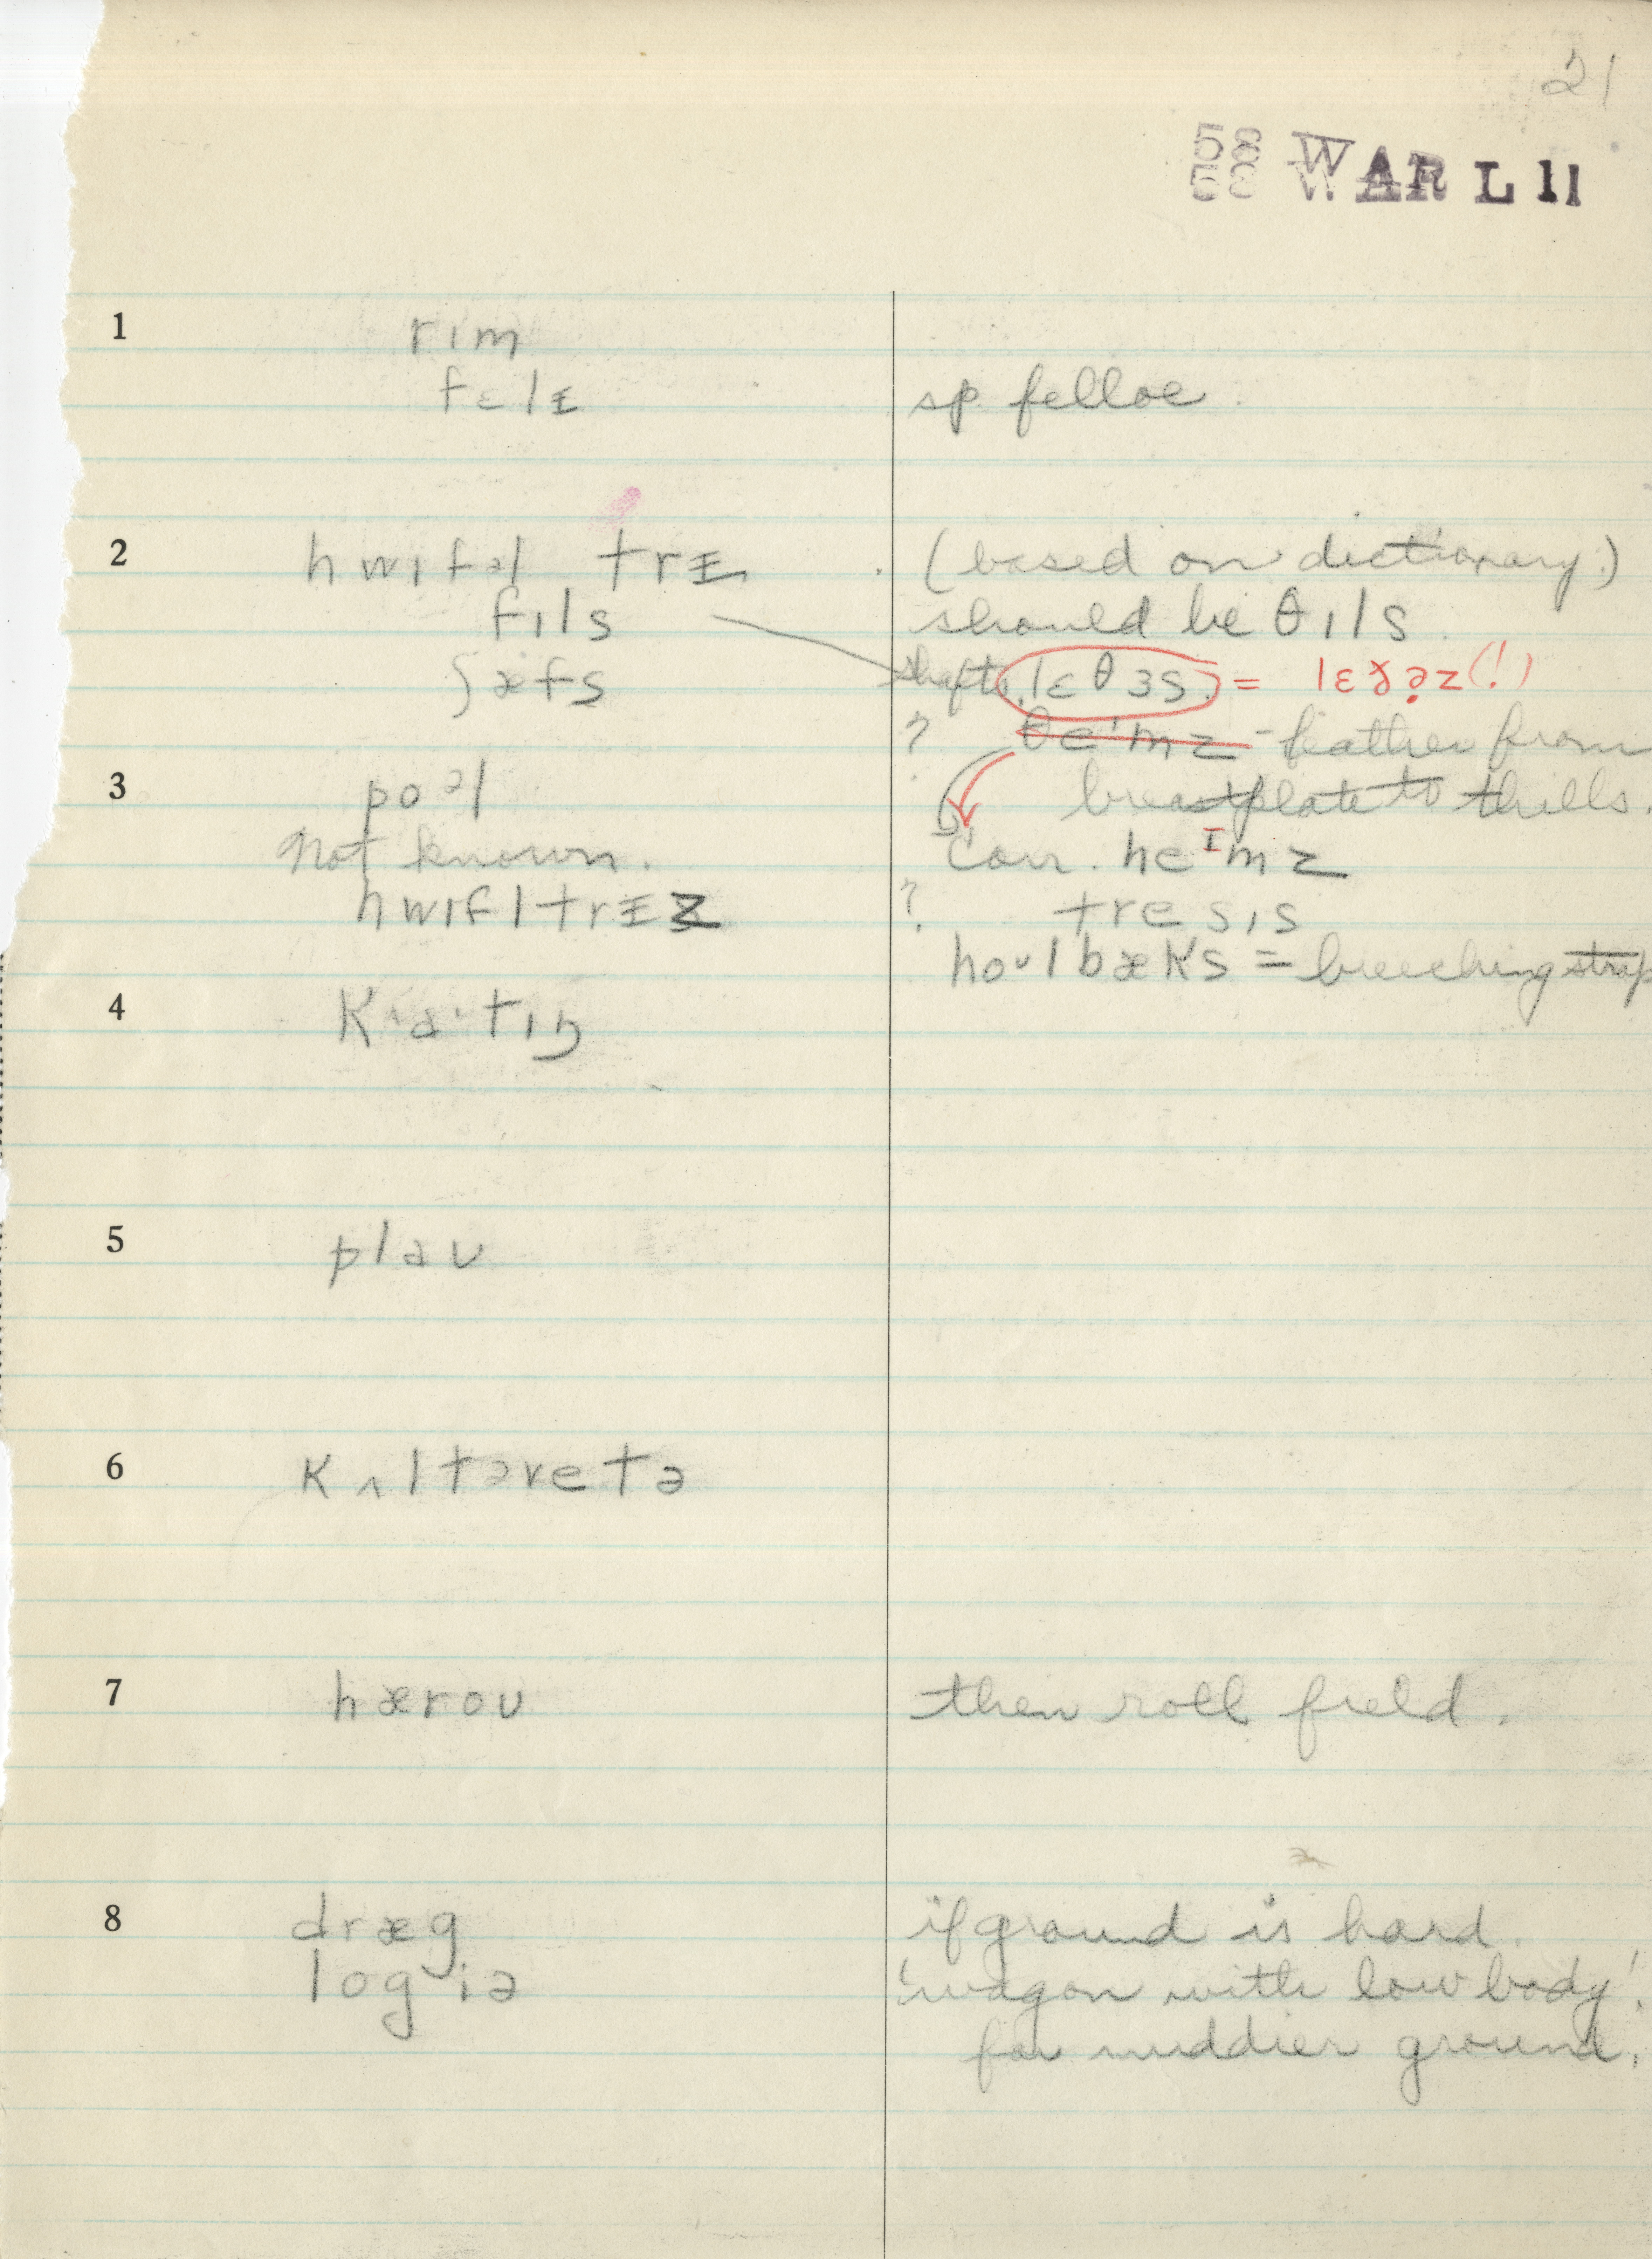 21
58 WAR L 11
1 rɪm
fɛlɪ sp felloe.
2 hwɪfəl trɪ (based on dictionary.)
fɪls should be θɪls
ʃæfs shafts. lɛθɜs. = lɛðəz (!)
? θeˈmz - leather from
breastplate to thills.
3 poəl
Not known. Corr. heᴵmz
hwɪfltrɪz ? tresɪs
hoᴜlbæks = breeching strap
4 Kˈaˑtɪŋ
5 plaᴜ
6 Kʌltəvetə
7 hæroᴜ then roll field.
8 dræg if ground is hard.
log iə 'wagon with low body'.
for muddier ground.